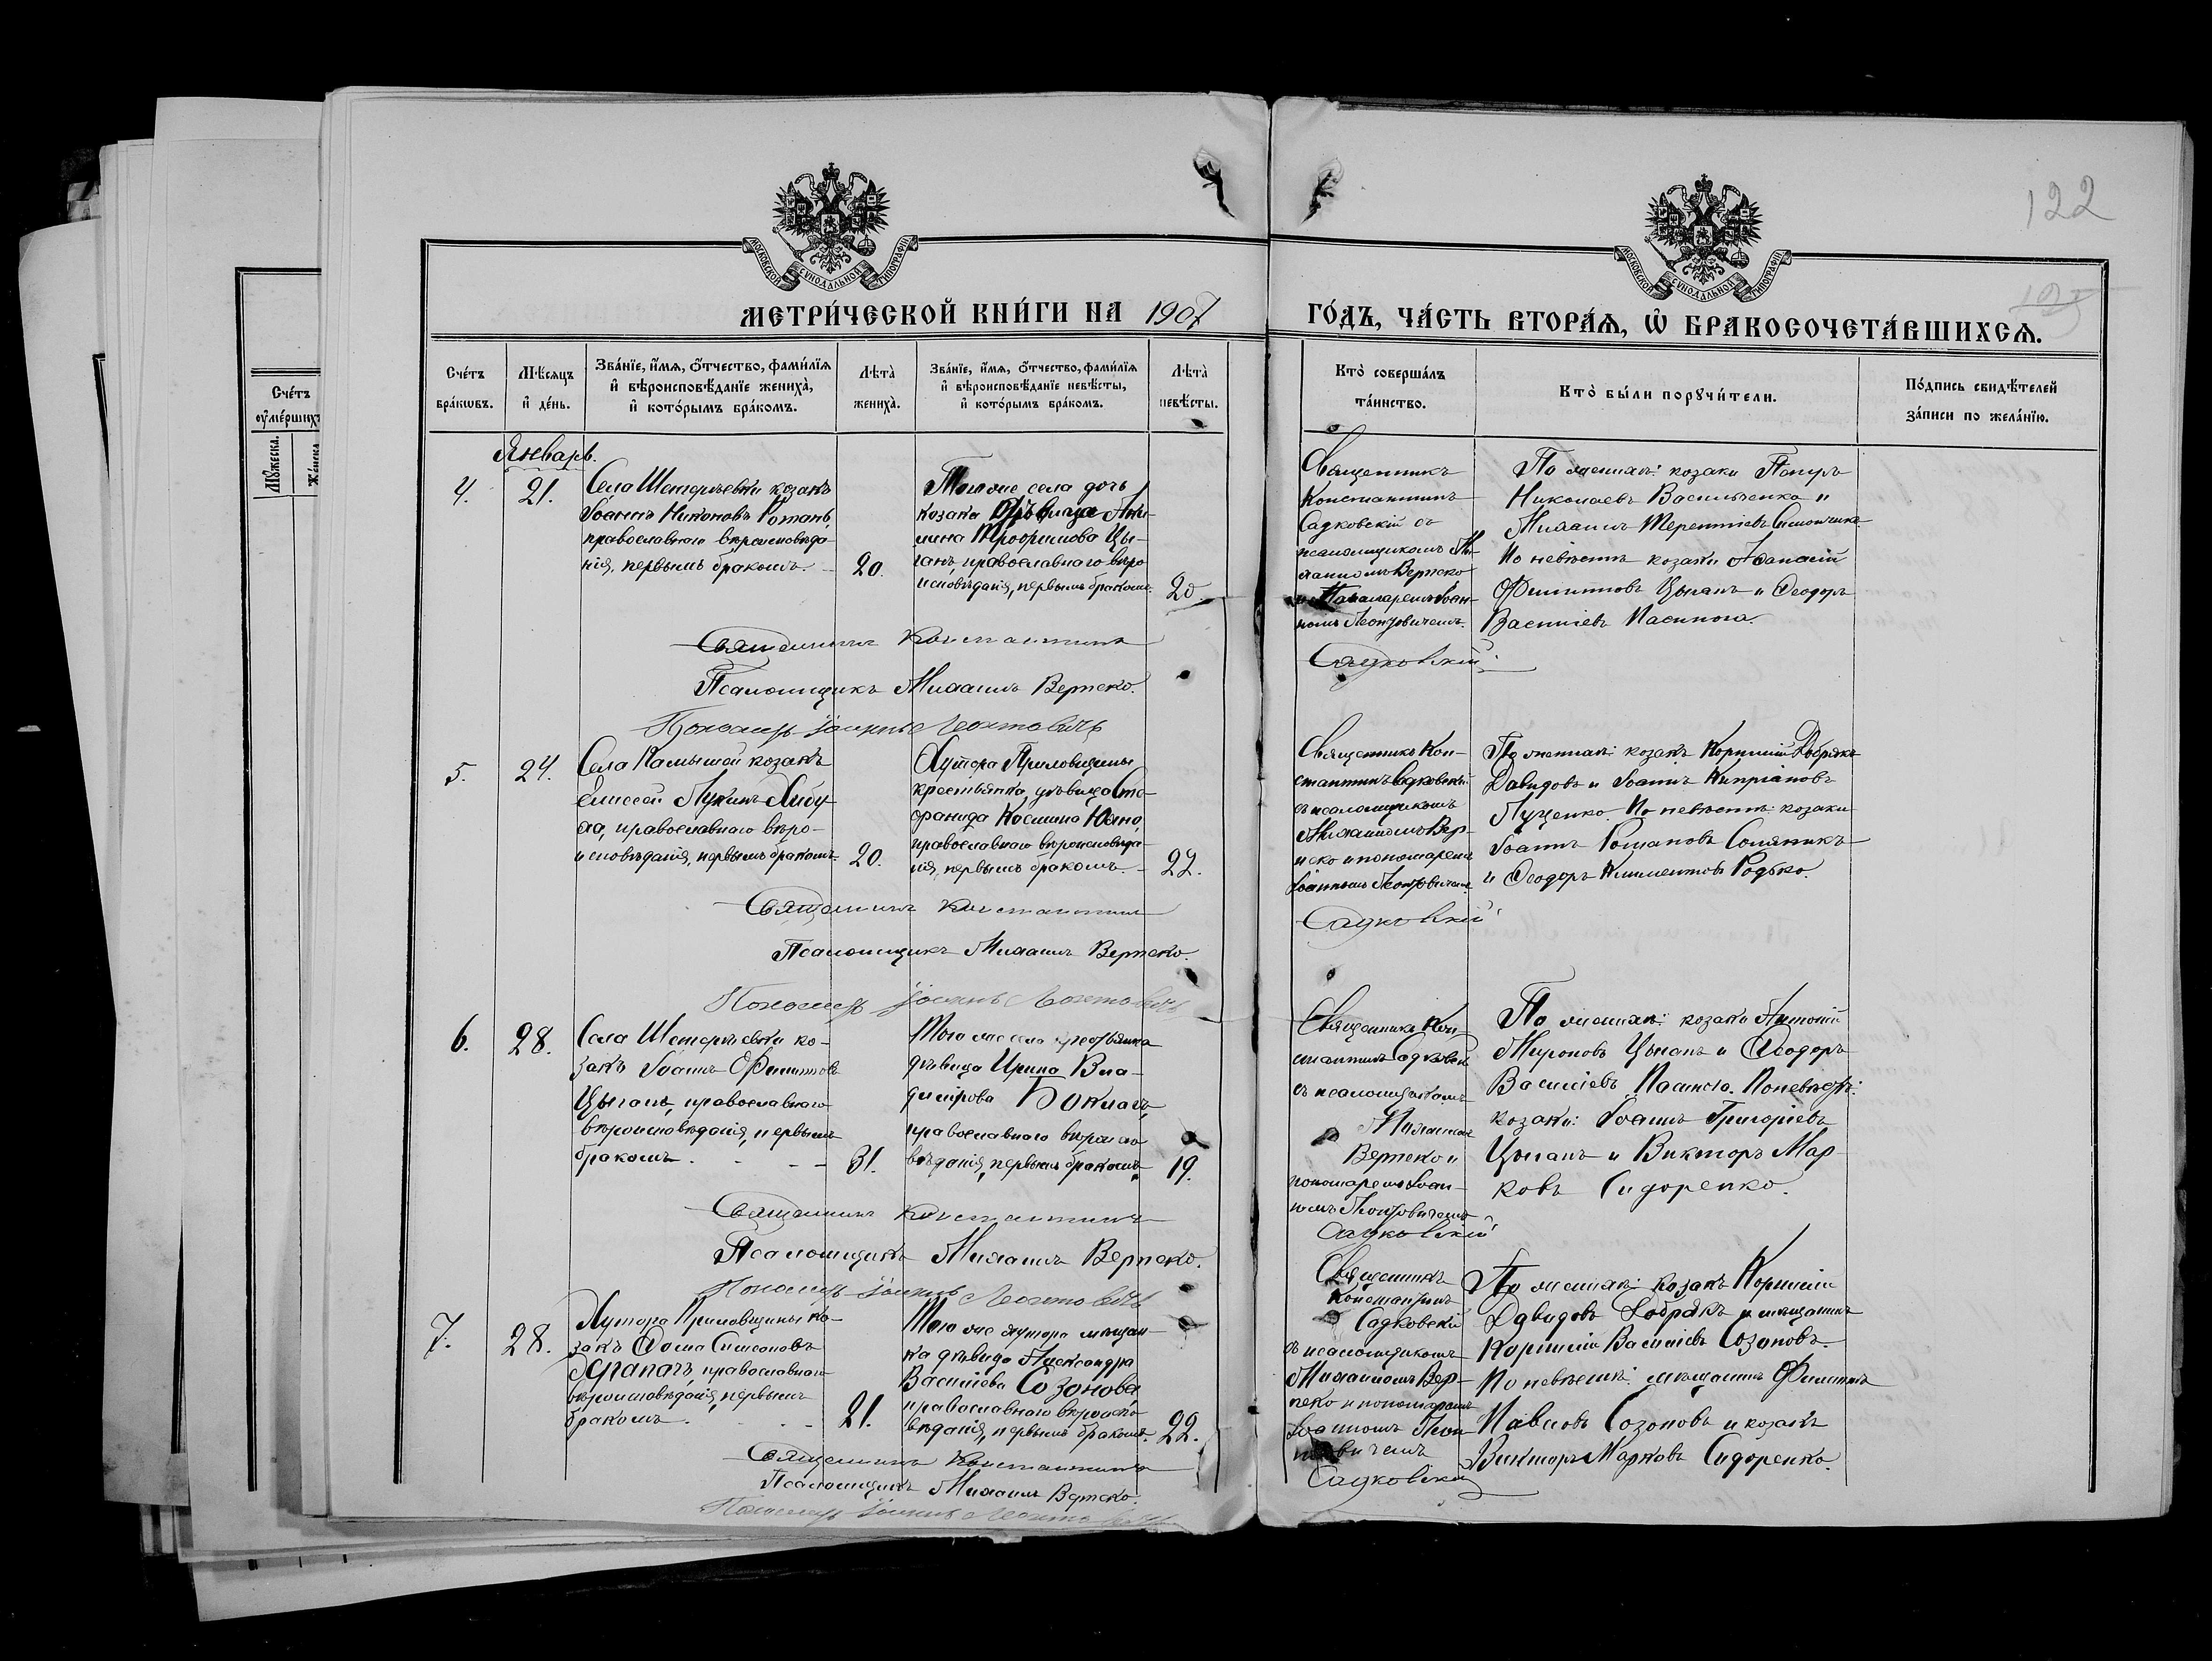 122
МОСКОВСКОЙ СѴНОДАЛЬНОЙ ТИПОГРАФІИ
МОСКОВСКОЙ СѴНОДАЛЬНОЙ ТИПОГРАФІИ
МЕТРИ́ЧЕСКОЙ КНИ́ГИ НА 1907 ГО́ДЪ, ЧА́СТЬ ВТОРА́Ѧ, Ѿ БРАКОСОЧЕТА́ВШИХСѦ.
Сче́тъ
оуме́ршихъ
Мꙋжеска.
Же́нска
Сче́тъ
бра́кωвъ.
Мѣ́сѧцъ
и҆ де́нь.
Зва́нїе, и҆́мѧ, ѻ҆́тчество, фами́лїѧ
и҆ вѣроисповѣ́данїе жениха̀,
и҆ кото́рымъ бра́комъ.
Лѣ́та̀
жениха̀.
Зва́нїе, и҆́мѧ, ѻ҆́тчество, фами́лїѧ
и҆ вѣроисповѣ́данїе невѣ́сты,
и҆ кото́рымъ бра́комъ.
Лѣ́та̀
невѣ́сты.
Кто̀ соверша́лъ
та́инство.
Кто̀ бы́ли порꙋчи́тели.
По́дпись свидѣ́телей
за́писи по жела́нїю.
Январь.
4.
21.
Села козакъ
Іоаннъ Никоновъ Романъ,
православнаго вѣроисповѣда-
нія, первымъ бракомъ.
20.
Того же села дочь
козака дѣвица
Трофимова Цы-
ганъ, православнаго вѣро
исповѣданія, первымъ бракомъ.
20.
Священникъ
Константинъ
Садковскій съ
псаломщикомъ Ми-
хаиломъ Вернеко
и Іоан-
номъ Леонтовичемъ.
По женихѣ: козаки Петръ
Николаевъ Васильченко и
Михаилъ Терентіевъ
По невѣстѣ козаки Афанасій
Филипповъ Цыганъ и Ѳеодоръ
Василіевъ
Священникъ Константинъ Садковскій
Псаломщикъ Михаилъ Вернеко.
Пономарь Іоаннъ Леонтовичъ
5.
24.
Села Камышей козакъ
Елисей Лукинъ
православнаго вѣро-
исповѣданія, первымъ бракомъ.
20.
Хутора Приловщины
крестьянка, дѣвица Сте-
фанида Косьмина
православнаго вѣроисповѣда-
нія, первымъ бракомъ.
22.
Священникъ Кон-
стантинъ Садковскій
съ псаломщикомъ
Михаиломъ Вер-
неко и пономаремъ
Іоанномъ Леонтовичемъ
По женихѣ: козакъ Корнилій Добрякъ
Давидовъ и Іоаннъ Кипріановъ
Луценко. По невѣстѣ: козаки
Іоаннъ Романовъ
и Ѳеодоръ Климентовъ Родько.
Священникъ Константинъ Садковскій
Псаломщикъ Михаилъ Вернеко.
Пономарь Іоаннъ Леонтовичъ
6.
28.
Села ко-
закъ Іоаннъ Филипповъ
Цыганъ, православнаго
вѣроисповѣданія, первымъ
бракомъ.
31.
Того же села крестьянка
дѣвица Ирина Вла-
димірова Боклагъ,
православнаго вѣроиспо
вѣданія, первымъ бракомъ
19.
Священникъ Кон-
стантинъ Садковскій
съ псаломщикомъ
Михаиломъ
Вернеко и
пономаремъ Іоан-
номъ Леонтовичемъ
По женихѣ: козаки Антоній
Мироновъ Цыганъ и Ѳеодоръ
Василіевъ По невѣстѣ:
козаки: Іоаннъ Григоріевъ
Цыганъ и Викторъ Мар
ковъ Сидоренко.
Священникъ Константинъ Садковскій
Псаломщикъ Михаилъ Вернеко.
Пономарь Іоаннъ Леонтовичъ
7.
28.
Хутора Приловщины ко-
закъ Ѳома Симеоновъ
православнаго
вѣроисповѣданія, первымъ
бракомъ.
21.
Того же хутора мѣщан-
ка дѣвица Александра
Василіева Созонова
православнаго вѣроиспо
вѣданія, первымъ бракомъ.
22.
Священникъ
Константинъ
Садковскій
съ псаломщикомъ
Михаиломъ Вер-
неко и пономаремъ
Іоанномъ Леон
товичемъ
По женихѣ: козакъ Корнилій
Давидовъ Добрякъ и мѣщанинъ
Корнилій Василіевъ Созоновъ.
По невѣстѣ: мѣщанинъ Филиппъ
Павловъ Созоновъ и козакъ
Викторъ Марковъ Сидоренко.
Священникъ Константинъ Садковскій
Псаломщикъ Михаилъ Вернеко.
Пономарь Іоаннъ Леонтовичъ